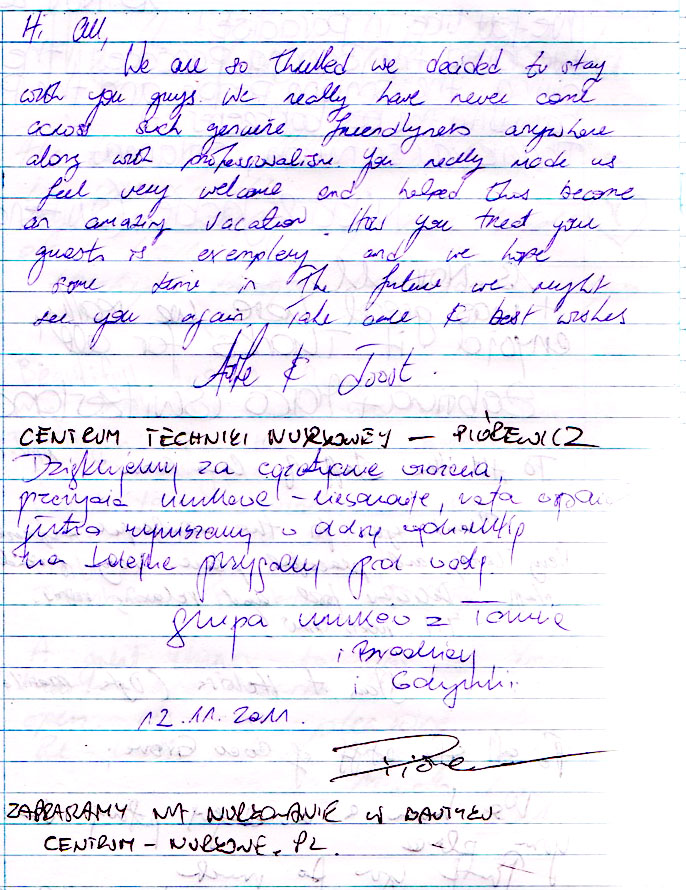 Hi All,
We are so thrilled we decided to stay
with you guys. We really have never come
across such genuine friendlyness anywhere
along with professionalism. You really made us
feel very welcome and helped this become
an amazing vacation. How you treat you
guests is exemplery and we hope
some time in the future we might
see you again. Take care & best wishes
& Joost.
CENTRUM TECHNIKI NURKOWEJ – PIÓREWICZ
Dziękujemy za egzotyczne wrażenia,
przeżycia nurkowe - niesamowite, rafa
jutro wyruszamy w dalszą
na kolejne przygody pod wodą.
grupa nurków z
i Brodnicy
12.11.2011.
ZAPRASZAMY NA NURKOWANIE W BAŁTYKU
CENTRUM-NURKOWE.PL